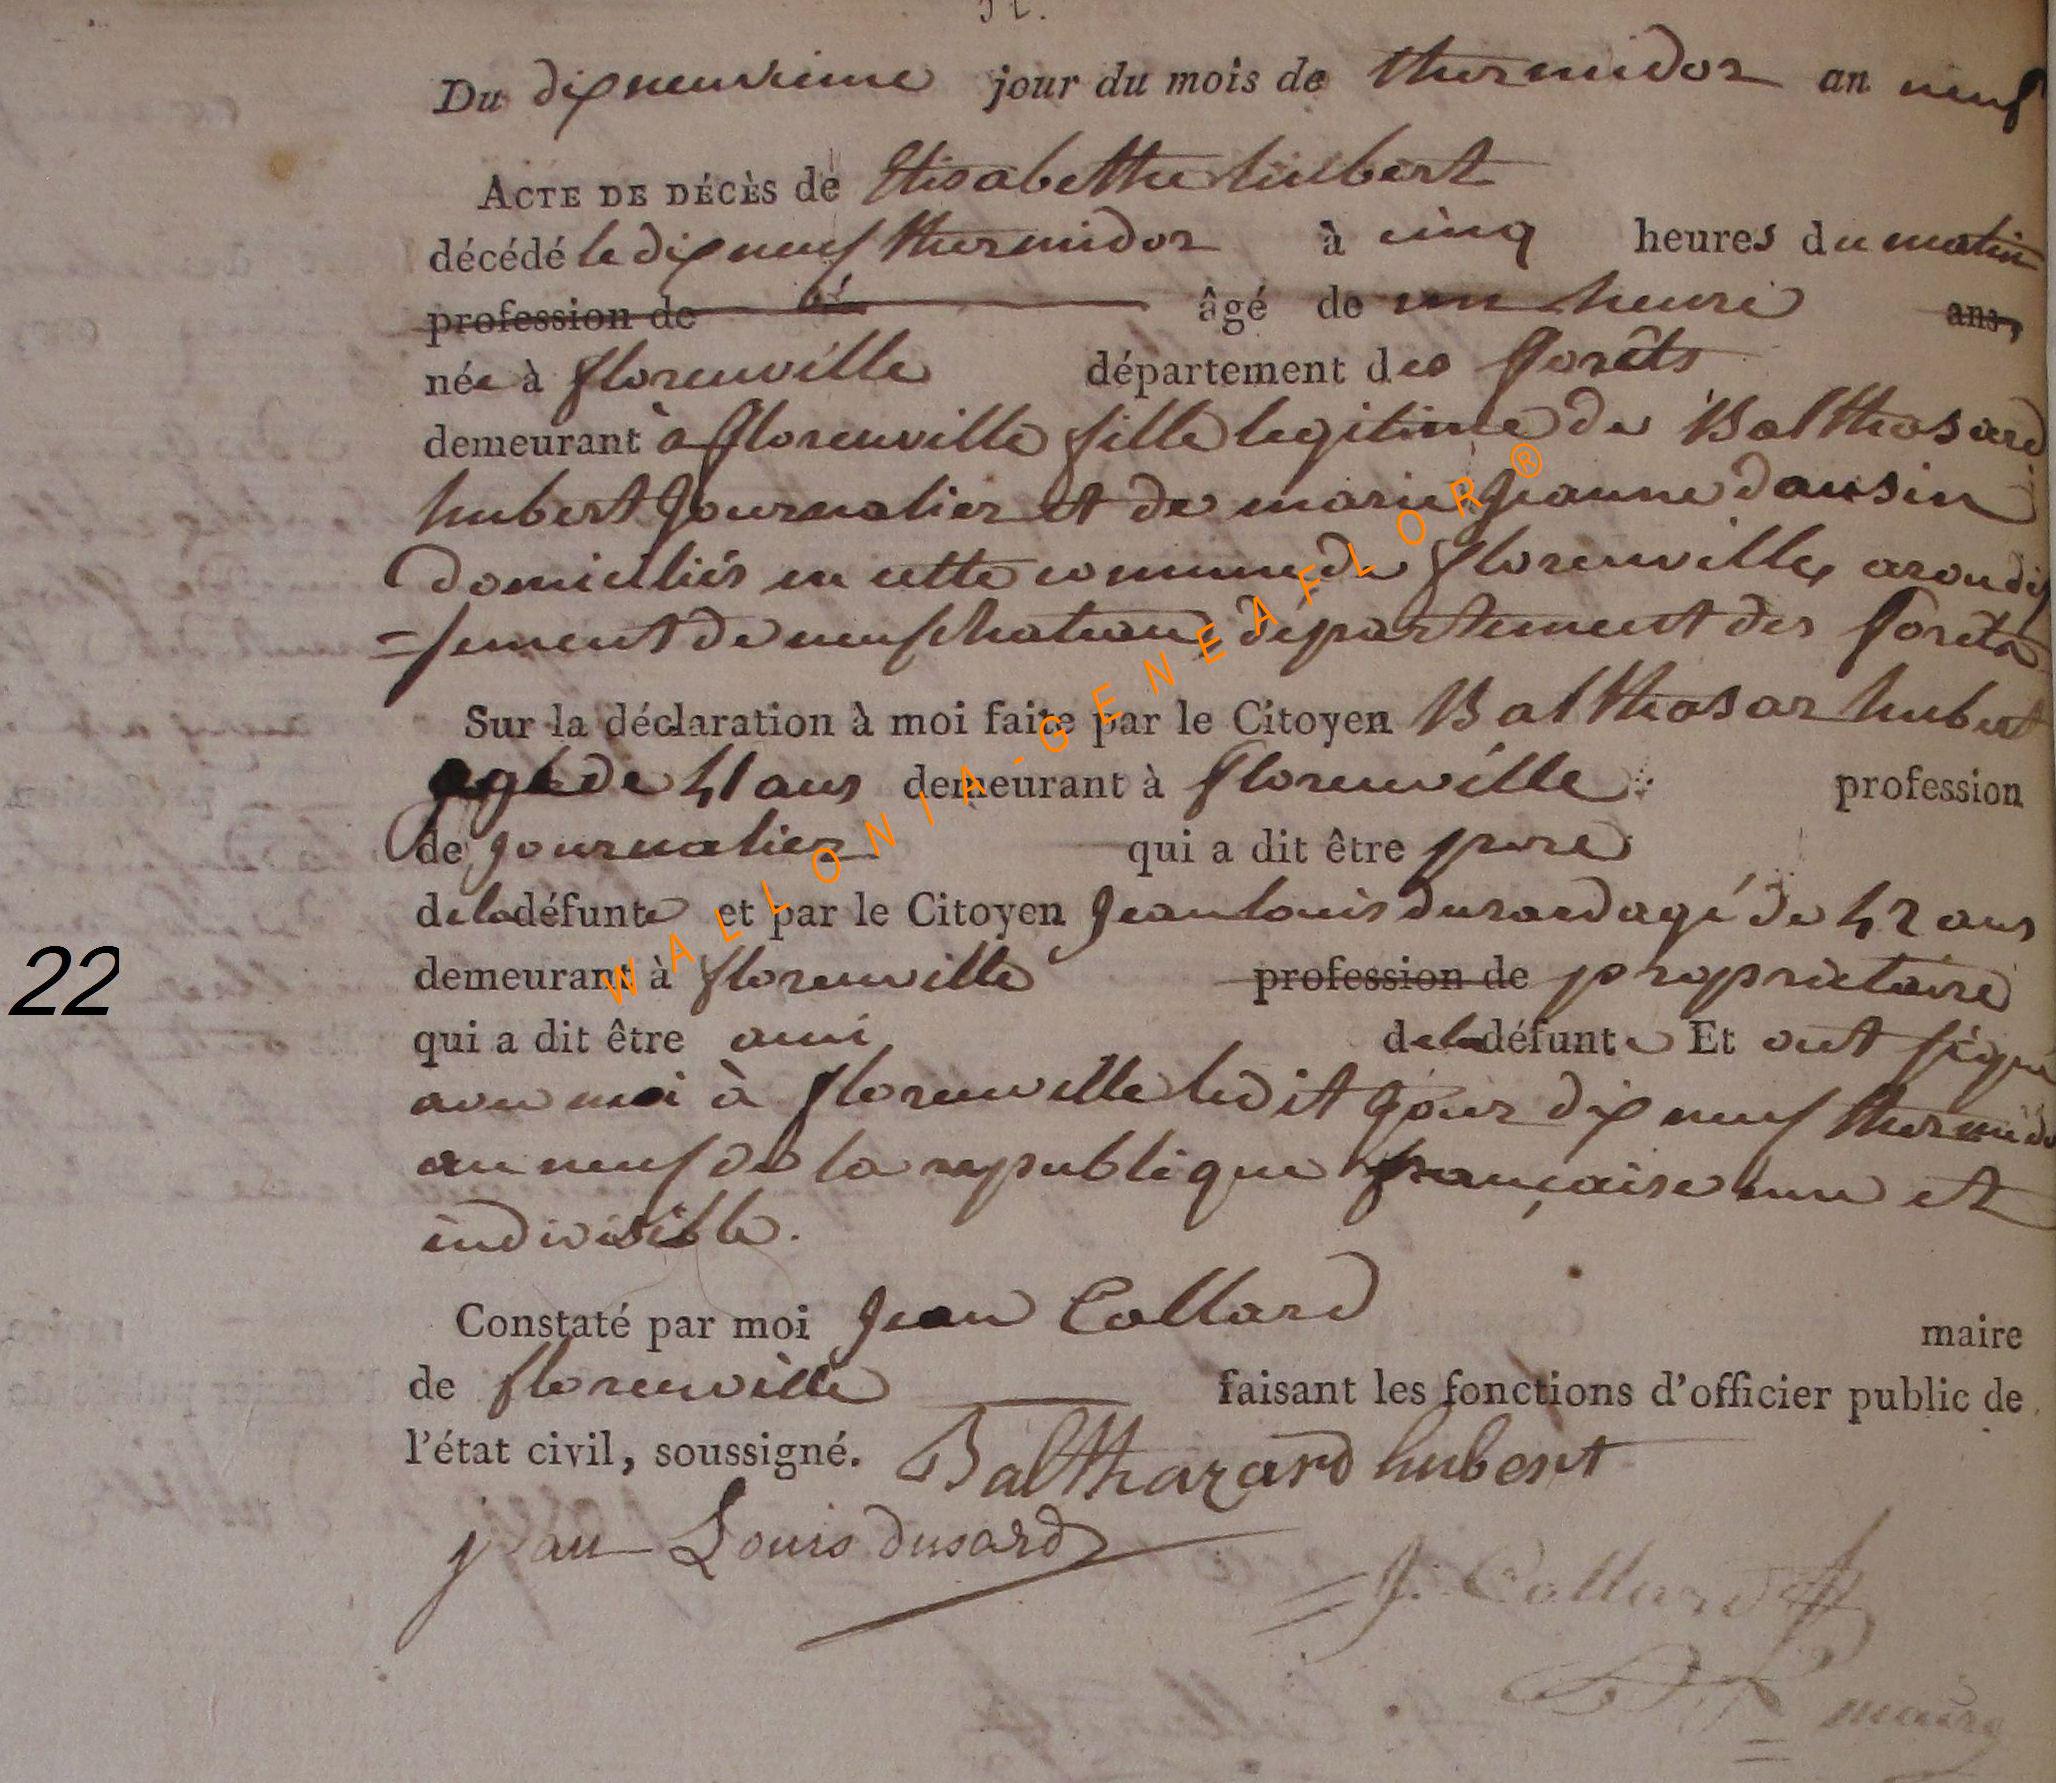 Du dixneuvieme jour du mois de thermidor an neuf
ACTE DE DÉCÈS de Elisabethe hubert
décédé le dix neuf thermidor à cinq heures du matin
profession de âgé de un heure ans,
née à florenville département des forêts
demeurant à florenville fille legitime de Balthasard
hubert journalier et de marie jeanne dausin
domiciliés en cette commune de florenville, arondis
=sement de neufchateau département des forêts
Sur la déclaration à moi faite par le Citoyen Balthasar hubert
agé de 41 ans demeurant à florenville profession
de journalier qui a dit être pere
de la défunte et par le Citoyen jean louis dusard agé de 42 ans
demeurant à florenville profession de proprietaire
qui a dit être ami de la défunte Et ont signé
avec moi à florenville ledit jour dix neuf thermido
an neuf de la republique française une et
indivisible.
Constaté par moi jean Collard maire
de florenville faisant les fonctions d'officier public de
l'état civil, soussigné. Balthazard hubert
jean Louis dusard
J. Collard
maire
22
WALLONIA-GENEAFLOR ®